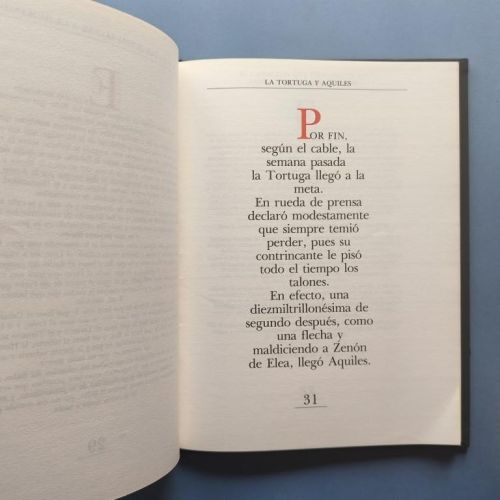 LA TORTUGA Y AQUILES
POR FIN,
según el cable, la
semana pasada
la Tortuga llegó a la
meta.
En rueda de prensa
declaró modestamente
que siempre temió
perder, pues su
contrincante le pisó
todo el tiempo los
talones.
En efecto, una
diezmiltrillonésima de
segundo después, como
una flecha y
maldiciendo a Zenón
de Elea, llegó Aquiles.
31